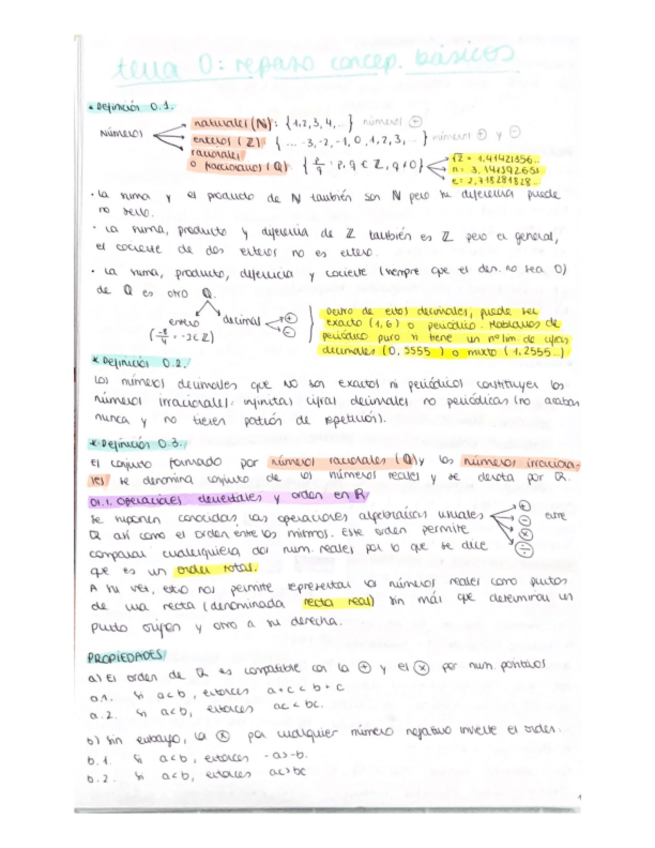 tema 0: repaso concep. básicos
* Definición 0.1.
Números
naturales (N): {1,2,3,4,..} números ⊕
enteros (Z): {... -3,-2,-1,0,1,2,3,..} números ⊕ y ⊖
racionales
o fraccionarios (Q) {p/q : p,q ∈ Z, q≠0}
√2 = 1,41421356..
π = 3,141592653..
e = 2,718281828..
· La suma y el producto de N también son N pero su diferencia puede
no serlo.
· La suma, producto y diferencia de Z también es Z pero en general,
el cociente de dos enteros no es entero.
· La suma, producto, diferencia y cociente (siempre que el den. no sea 0)
de Q es otro Q.
entero
(-8/4 = -2 ∈ Z)
decimal ⊕ ⊖
Dentro de estos decimales, puede ser
exacto (1,6) o periódico. Hablamos de
periódico puro si tiene un nº lim de cifras
decimales (0,5555 ) o mixto (1,2555..)
* Definición 0.2.
Los números decimales que no son exactos ni periódicos constituyen los
números irracionales: infinitas cifras decimales no periódicas (no acaban
nunca y no tienen patrón de repetición).
* Definición 0.3.
El conjunto formado por números racionales (Q) y los números irraciona-
les se denomina conjunto de los números reales y se denota por R.
01.1. Operaciones elementales y orden en R
Se suponen conocidas las operaciones algebraicas usuales ⊕ ⊖ ⊗ ⊕ entre
R así como el orden entre los mismos. Este orden permite
comparar cualesquiera dos num. reales por lo que se dice
que es un orden total.
A su vez, esto nos permite representar los números reales como puntos
de una recta (denominada recta real) sin más que determinar un
punto origen y otro a su derecha.
PROPIEDADES
a) El orden de R es compatible con la ⊕ y el ⊗ por num. positivos
a.1. Si a<b, entonces a+c < b+c
a.2. Si a<b, entonces ac < bc.
b) Sin embargo, la ⊗ por cualquier número negativo invierte el orden.
b.1. Si a<b, entonces -a>-b.
b.2. Si a<b, entonces ac>bc
1